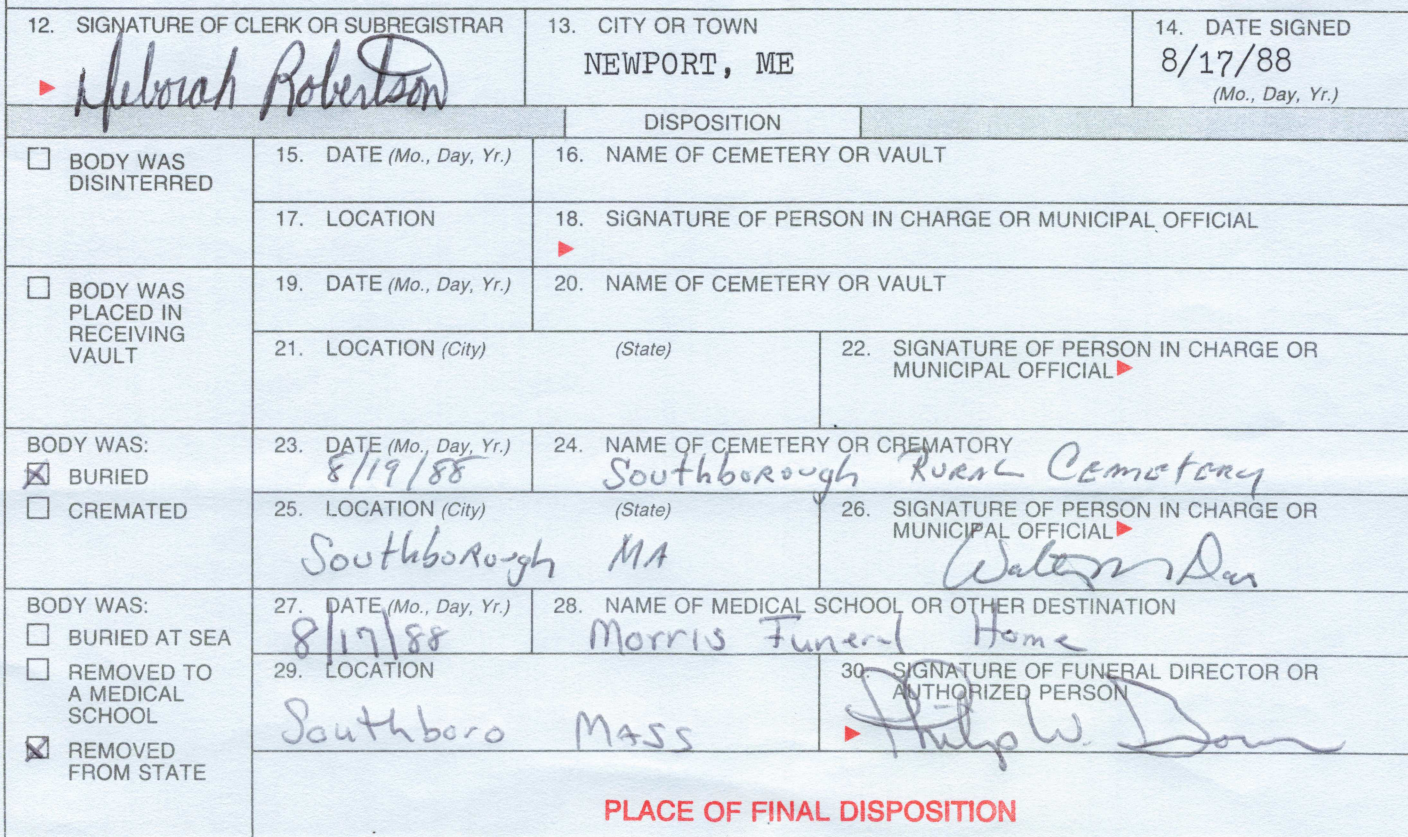 12. SIGNATURE OF CLERK OR SUBREGISTRAR
Deborah Robertson
13. CITY OR TOWN
NEWPORT, ME
14. DATE SIGNED
8/17/88
(Mo., Day, Yr.)
DISPOSITION
BODY WAS
DISINTERRED
15. DATE (Mo., Day, Yr.)
16. NAME OF CEMETERY OR VAULT
17. LOCATION
18. SIGNATURE OF PERSON IN CHARGE OR MUNICIPAL OFFICIAL
BODY WAS
PLACED IN
RECEIVING
VAULT
19. DATE (Mo., Day, Yr.)
20. NAME OF CEMETERY OR VAULT
21. LOCATION (City) (State)
22. SIGNATURE OF PERSON IN CHARGE OR
MUNICIPAL OFFICIAL
BODY WAS:
BURIED
CREMATED
23. DATE (Mo., Day, Yr.)
8/19/88
24. NAME OF CEMETERY OR CREMATORY
Southborough Rural Cemetery
25. LOCATION (City) (State)
Southborough MA
26. SIGNATURE OF PERSON IN CHARGE OR
MUNICIPAL OFFICIAL
BODY WAS:
BURIED AT SEA
REMOVED TO
A MEDICAL
SCHOOL
REMOVED
FROM STATE
27. DATE (Mo., Day, Yr.)
8/17/88
28. NAME OF MEDICAL SCHOOL OR OTHER DESTINATION
Morris Funeral Home
29. LOCATION
Southboro MASS
30. SIGNATURE OF FUNERAL DIRECTOR OR
AUTHORIZED PERSON
Philip W.
PLACE OF FINAL DISPOSITION